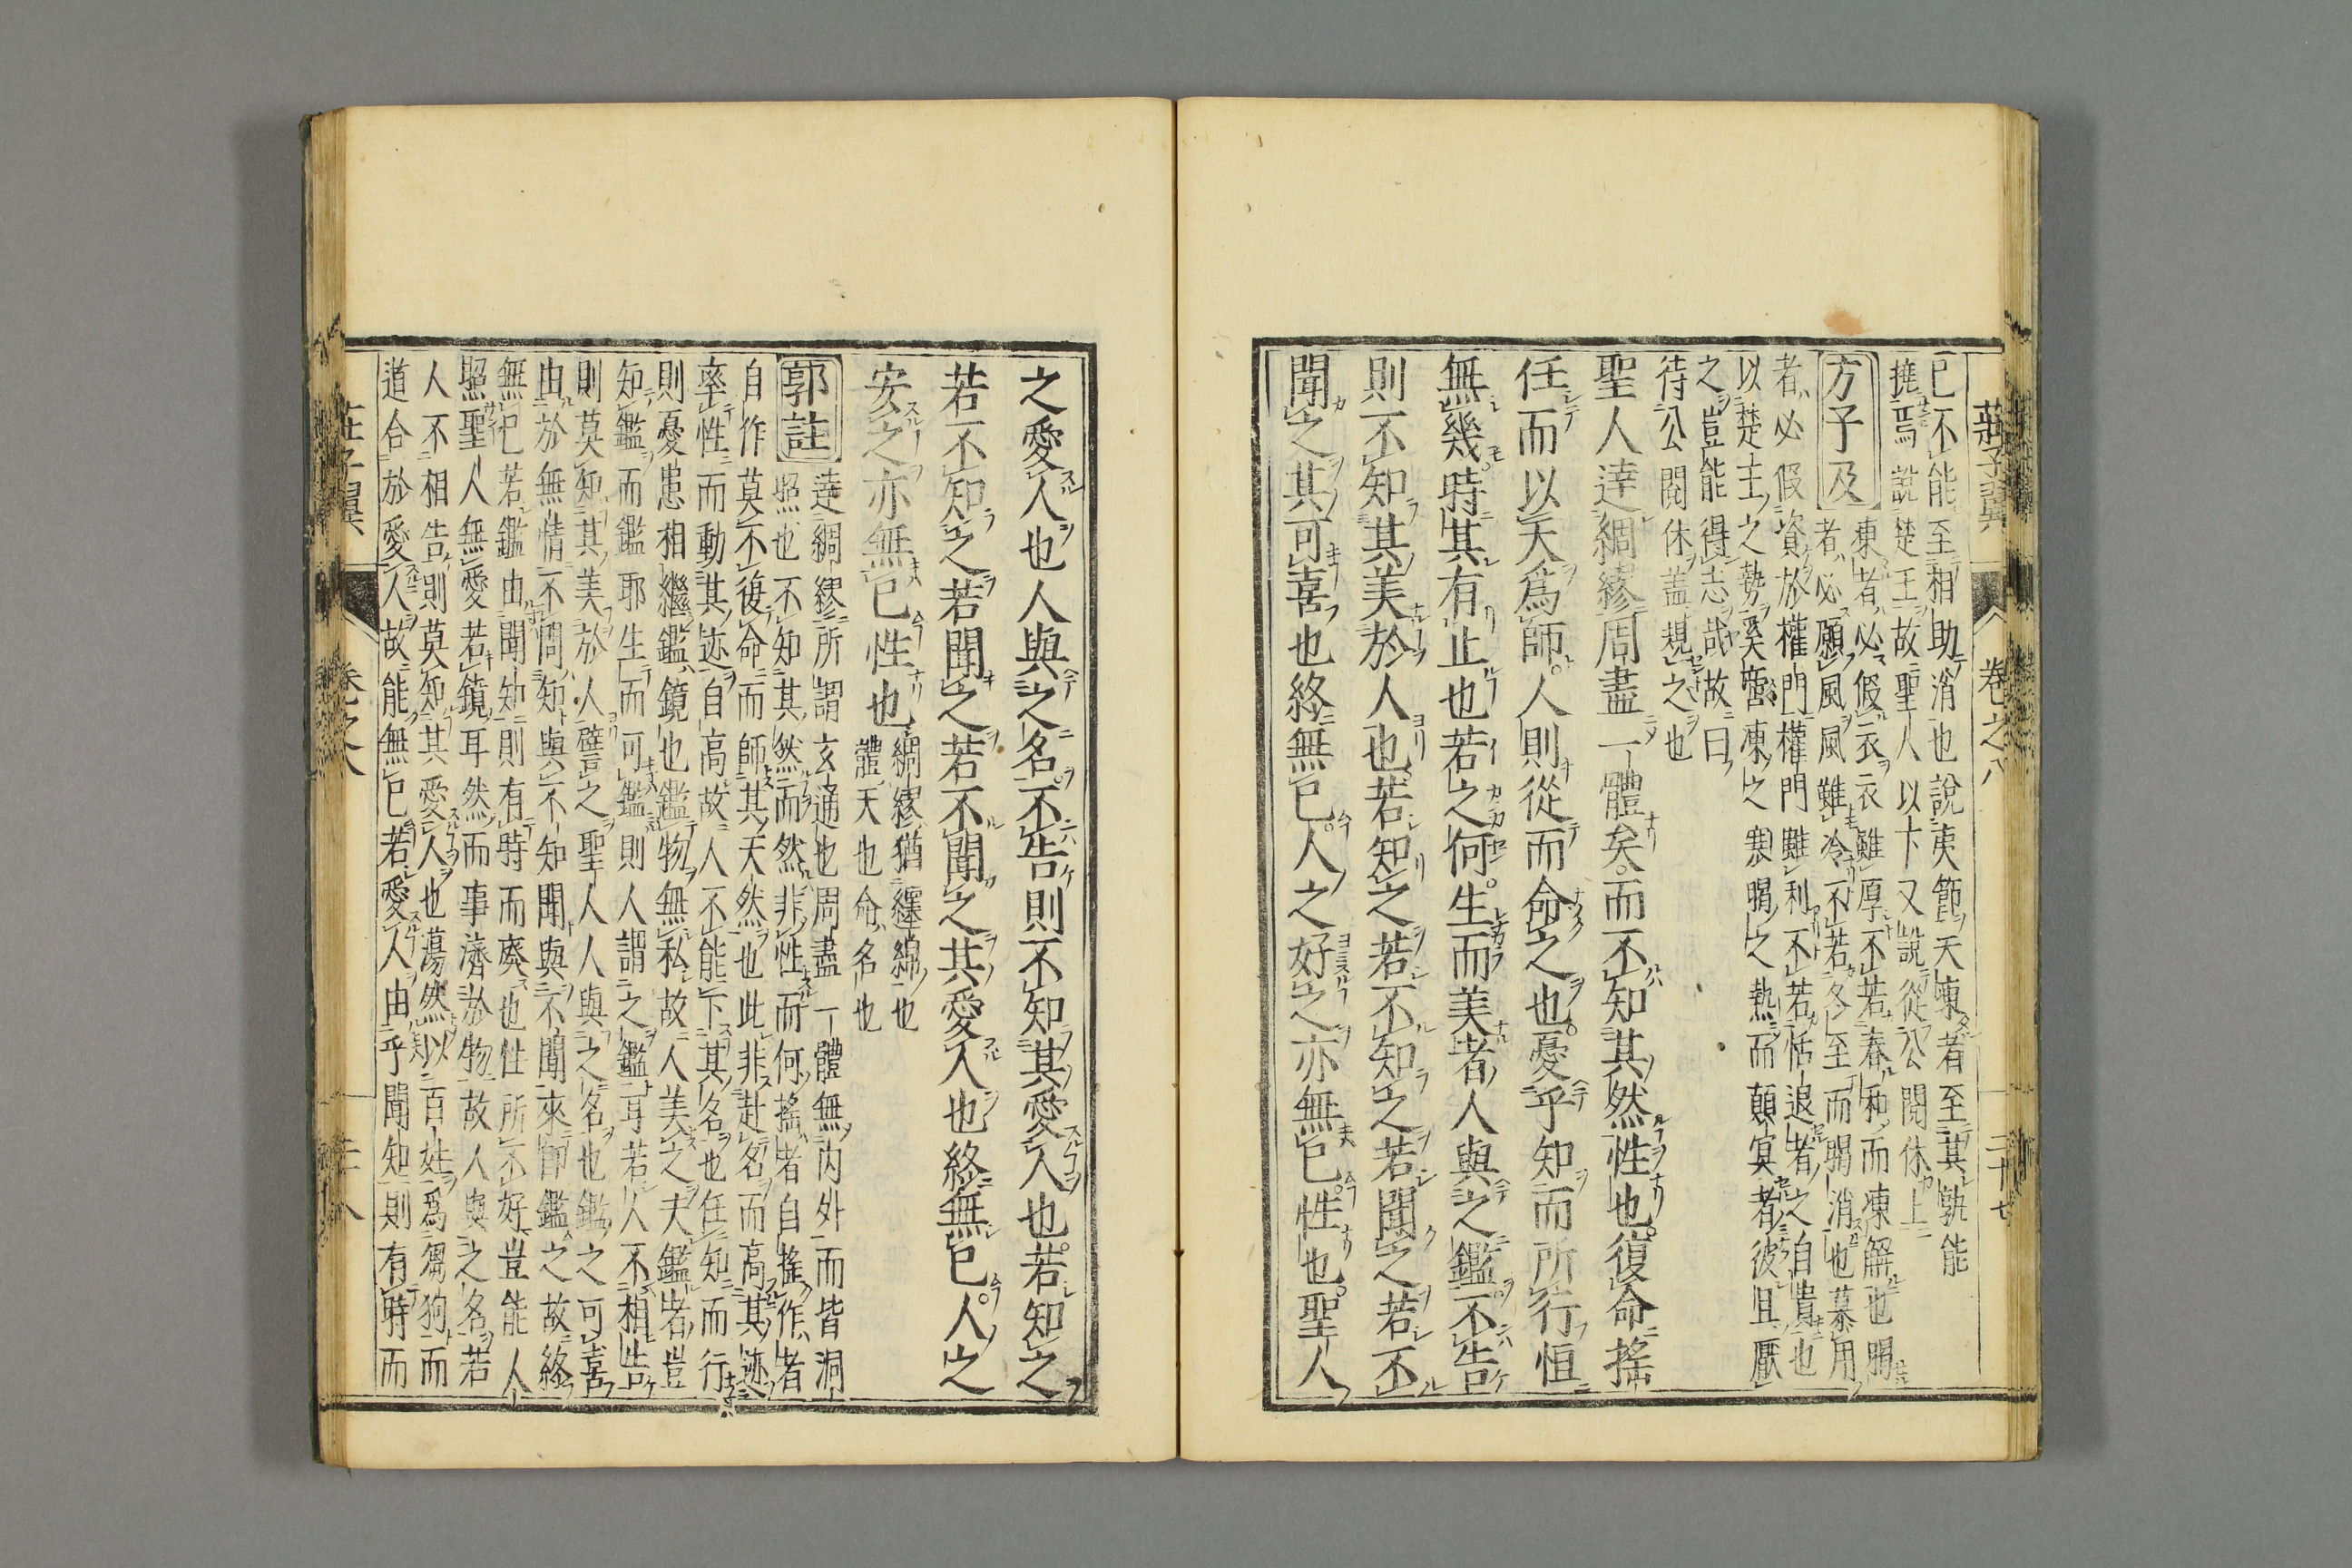 莊子翼 卷之八 二十七
已不能至相助消也說夷節天凍者至其孰能
撓焉說楚王故聖人以卞又說從公閱休上
方子及
凍者必假衣衣雖厚不若春和而凍解也暍
者必願風風雖冷不若冬至而暍消也慕用
者必假資於權門權門雖利不若恬退者之自貴也
以楚主之勢奚啻凍之裘暍之熱而顛冥者彼且厭
之豈能得志哉故曰
待公閱休蓋規之也
聖人達綢繆周盡一體矣而不知其然性也復命搖
任而以天爲師人則從而命之也憂乎知而所行恒
無幾時其有止也若之何生而美者人與之鑑不告
則不知其美於人也若知之若不知之若聞之若不
聞之其可喜也終無已人之好之亦無已性也聖人
之愛人也人與之名不告則不知其愛人也若知之
若不知之若聞之若不聞之其愛人也終無已人之
安之亦無已性也
綢繆猶纏綿也
體天也命名也
郭註
達綢繆所謂玄通也周盡一體無內外而皆洞
照也不知其然而然非性而何搖者自搖作者
自作莫不復命而師其天然也此非赴名而高其迹
率性而動其迹自高故人不能下其名也任知而行
則憂患相繼鑑鏡也鑑物無私故人美之夫鑑者豈
知鑑而鑑耶生而可鑑則人謂之鑑耳若人不相告
則莫知其美於人譬之聖人人與之名也鑑之可喜
由於無情不問知與不知聞與不聞來卽鑑之故終
無已若鑑由聞知則有時而廢也性所不好豈能人
照聖人無愛若鏡耳然而事濟於物故人與之名若
人不相告則莫知其愛人也蕩然以百姓爲芻狗而
道合於愛人故能無已若愛人由乎聞知則有時而
莊子翼 卷之八 二十八